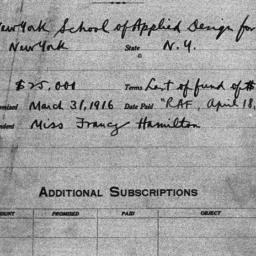 New York School of Applied Design for
New York State N.Y.
$25,000 Terms of fund of $
March 31, 1916 Date Paid "RAF, April 18,
Miss Francy Hamilton
ADDITIONAL SUBSCRIPTIONS
OUNT PROMISED PAID OBJECT